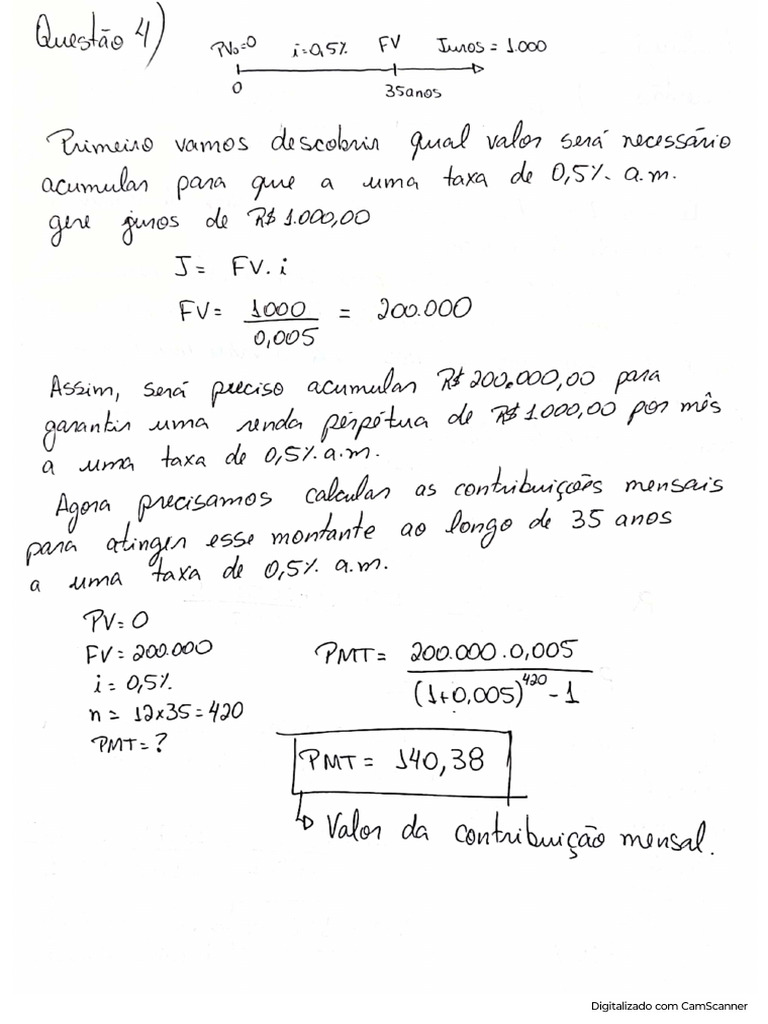 Questão 4)
PV₀=0 i=0,5% FV Juros = 1.000
0 35anos
Primeiro vamos descobrir qual valor será necessário
acumular para que a uma taxa de 0,5% a.m.
gere juros de R$ 1.000,00
J = FV. i
FV = 1000 / 0,005 = 200.000
Assim, será preciso acumular R$ 200.000,00 para
garantir uma renda perpétua de R$ 1.000,00 por mês
a uma taxa de 0,5% a.m.
Agora precisamos calcular as contribuições mensais
para atingir esse montante ao longo de 35 anos
a uma taxa de 0,5% a.m.
PV = 0
FV = 200.000
i = 0,5%
n = 12x35 = 420
PMT = ?
PMT = 200.000 . 0,005 / (1+0,005)^420 - 1
PMT = 140,38
↳ Valor da contribuição mensal.
Digitalizado com CamScanner